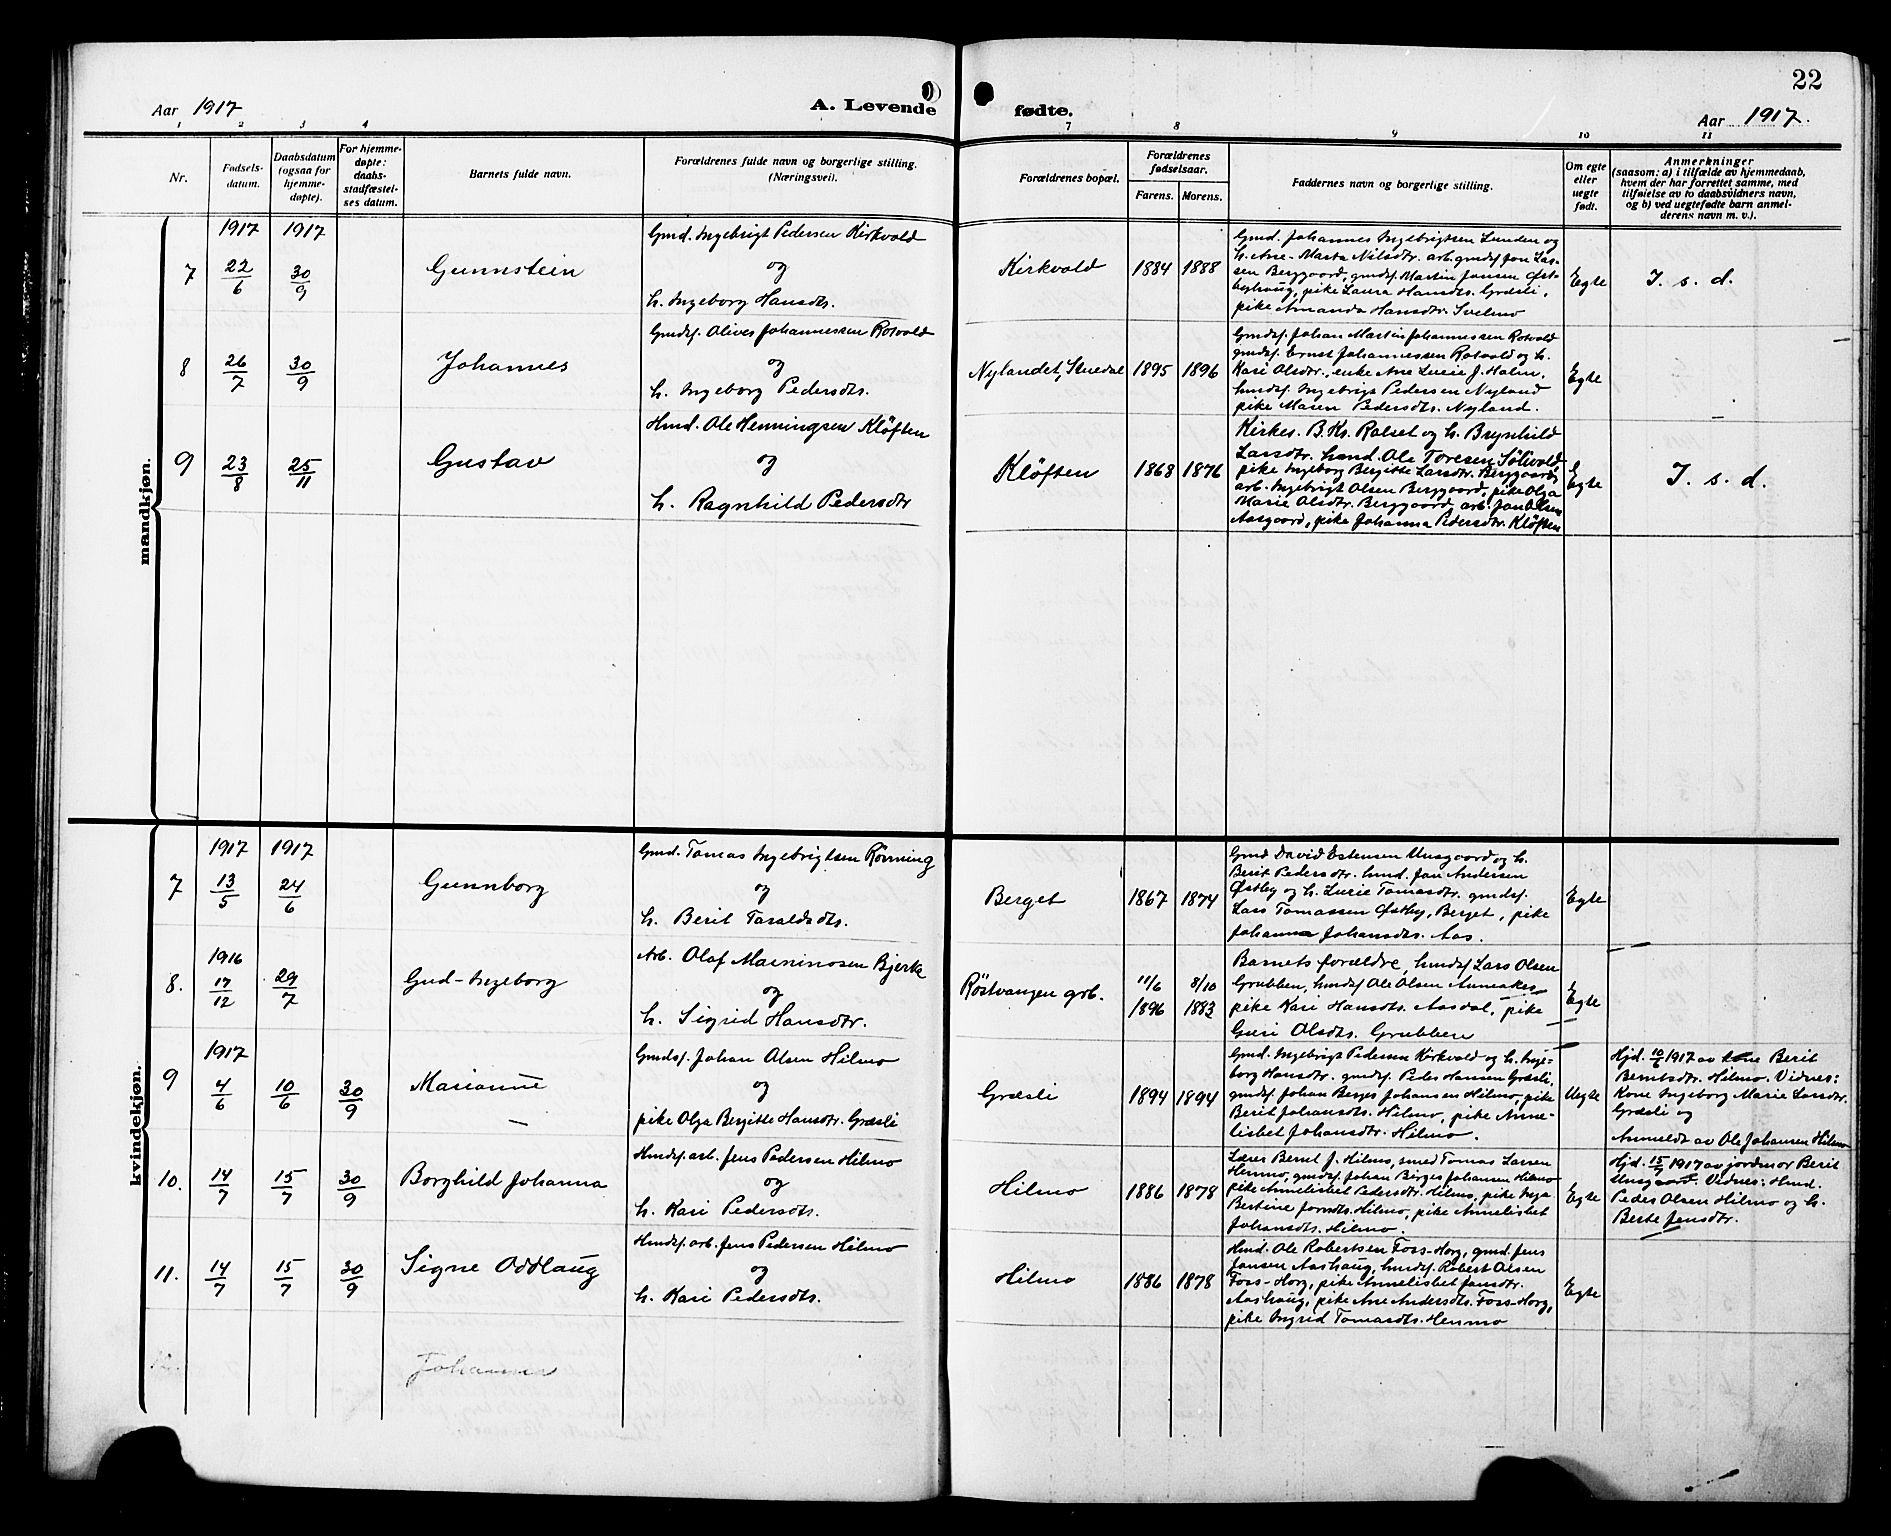 22
Aar 1917
A. Levende fødte.
Aar 1917.
1 2 3 4 7 8 9 10 11
Nr.
Fødsels-
datum.
Daabsdatum
(ogsaa for
hjemme-
døpte).
For hjemme-
døpte:
daabs-
stadfæstel-
ses datum.
Barnets fulde navn.
Forældrenes fulde navn og borgerlige stilling.
(Næringsvei).
Forældrenes bopæl.
Forældrenes
fødselsaar.
Farens. Morens.
Faddernes navn og borgerlige stilling.
Om egte
eller
uegte
født.
Anmerkninger
(saasom: a) i tilfælde av hjemmedaab,
hvem der har forrettet samme, med
tilføielse av to daabsvidners navn,
og b) ved uegtefødte barn anmel-
derens navn m. v.).
mandkjøn.
1917 1917
7 22/6 30/9
Gunnstein
Gmd. Ingebrigt Pedersen Kirkvold
og
h. Ingeborg Hansdtr.
Kirkvold
1884 1888
Gmd. Johannes Ingebrigtsen Lunden og
h. Ane-Marta Nilsdtr. arb. gmdsf. Jon Lar-
sen Berggaard, gmdsf. Martin Jansen Øst-
byhaug, pike Laura Hansdtr. Græsli,
pike Amanda Hansdtr. Svelmo
Egte
I. s. d.
8 26/7 30/9
Johannes
Gmdsf. Oliver Johannessen Rotvold
og
h. Ingeborg Pedersdtr.
Nylandet, Stuedal
1895 1896
Gmdsf. Johan Martin Johannessen Rotvold
gmdsf. Ernst Johannessen Rotvold og h.
Kari Olsdtr., enke Ane Lucie J. Halm,
hmdsf. Ingebrigt Pedersen Nyland
pike Maren Pedersdtr. Nyland.
Egte
9 23/8 25/11
Gustav
Hmd. Ole Henningsen Kløften
og
h. Ragnhild Pedersdtr
Kløften
1868 1876
Kirkes. B. Kr. Rolset og h. Brynhild
Larsdtr. hmd. Ole Toresen Sølivold
pike Ingeborg Bergitte Larsdtr. Berggaard,
arb. Ingebrigt Olsen Berggaard, pike Olga
Marie Olsdtr. Berggaard, arb. Jon Olsen
Aasgaard, pike Johanna Pedersdtr. Kløften
Egte
I. s. d.
kvindekjøn.
1917 1917
7 13/5 24/6
Gunnborg
Gmd. Tomas Ingebrigtsen Rønning
og
h. Berit Taraldsdtr.
Berget
1867 1874
Gmd David Estensen Unsgaard og h.
Berit Pedersdtr. hmd. Jon Andersen
Østby og h. Lucie Tomasdtr. gmdsf.
Lars Tomassen Østby, Berget, pike
Johanna Johansdtr. Aas.
Egte
1916
8. 17/12 29/7
Gud-Ingeborg
Arb. Olaf Bjerke
og
h. Sigrid Hansdtr.
Røstvangen grb.
11/6 8/10
1896 1883
Barnets forældre, hmdsf Lars Olsen
Grubben, hmdsf Ole Olsen
pike Kari Hansdtr. Aasdal, pike
Guri Olsdtr. Grubben
Egte
1917
9 4/6 10/6 30/9
Marianne
Gmdsf. Johan Olsen Hilmo
og
pike Olga Bergitte Hansdtr. Græsli
Græsli
1894 1894
Gmd. Ingebrigt Pedersen Kirkvold og h. Inge-
borg Hansdtr. gmdsf. Peder Hansen Græsli,
gmdsf. Johan Berger Johansen Hilmo, pike
Berit Johansdtr. Hilmo, pike Anne-
lisbet Johansdtr. Hilmo.
Uegte
Hjd. 10/6 1917 av kone Berit
Berntsdtr. Hilmo. Vidnes:
Kone Ingeborg Marie Larsdtr.
Græsli og
Anmeldt av Ole Johansen Hilmo
10. 14/7 15/7 30/9
Borghild Johanna
Hmdsf. arb. Jens Pedersen Hilmo
og
h. Kari Pedersdtr.
Hilmo
1886 1878
Lærer Bernt J. Hilmo, smed Tomas Larsen
Henmo, gmdsf. Johan Birger Johansen Hilmo
pike Annelisbet Pedersdtr. Hilmo, pike Inga
Bertine Jonsdtr. Hilmo, pike Annelisbet
Johansdtr. Hilmo.
Egte
Hjd. 15/7 1917 av jordmor Berit
Unsgaard. Vidnes: Hmd.
Peder Olsen Hilmo og h.
Berte Jensdtr.
11. 14/7 15/7 30/9
Signe Oddlaug
Hmdsf. arb. Jens Pedersen Hilmo
og
h. Kari Pedersdtr.
Hilmo
1886 1878
Hmd. Ole Robertsen Foss-Horg, gmd. Jens
Jansen Aashaug, hmdsf. Robert Olsen
Foss-Horg, pike Annelisbet Jansdtr.
Aashaug, pike Ane Andersdtr. Foss-Horg,
pike Ingrid Tomasdtr. Henmo
Egte
12. Johanna